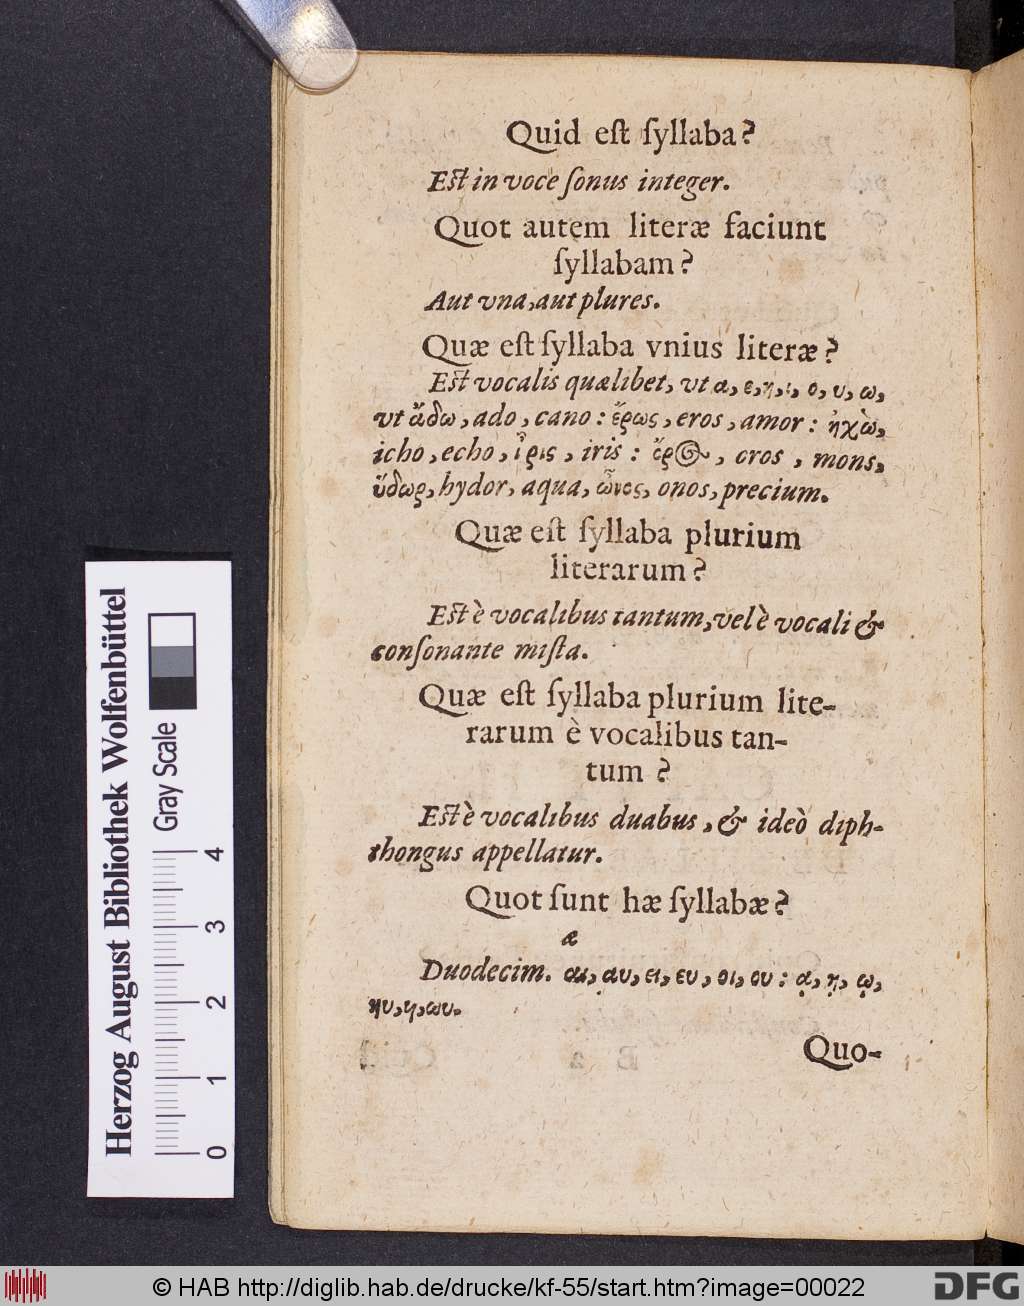 Quid eſt ſyllaba?
Eſt in voce ſonus integer.
Quot autem literæ faciunt
ſyllabam?
Aut vna, aut plures.
Quæ eſt ſyllaba vnius literæ?
Eſt vocalis quælibet, vt α, ε, η, ι, ο, υ, ω,
vt ἄδω, ado, cano: ἔρως, eros, amor: ἠχὼ,
icho, echo, ἶρις, iris: ὄρος, oros, mons,
ὕδωρ, hydor, aqua, ὦνος, onos, precium.
Quæ eſt ſyllaba plurium
literarum?
Eſt è vocalibus tantum, vel è vocali &
conſonante miſta.
Quæ eſt ſyllaba plurium lite-
rarum è vocalibus tan-
tum?
Eſt è vocalibus duabus, & ideò diph-
thongus appellatur.
Quot ſunt hæ ſyllabæ?
æ
Duodecim. αι, αυ, ει, ευ, οι, ου: ᾳ, ῃ, ῳ,
ηυ, ωυ.
Quo-
Herzog August Bibliothek Wolfenbüttel
Gray Scale
0 1 2 3 4
© HAB http://diglib.hab.de/drucke/kf-55/start.htm?image=00022
DFG